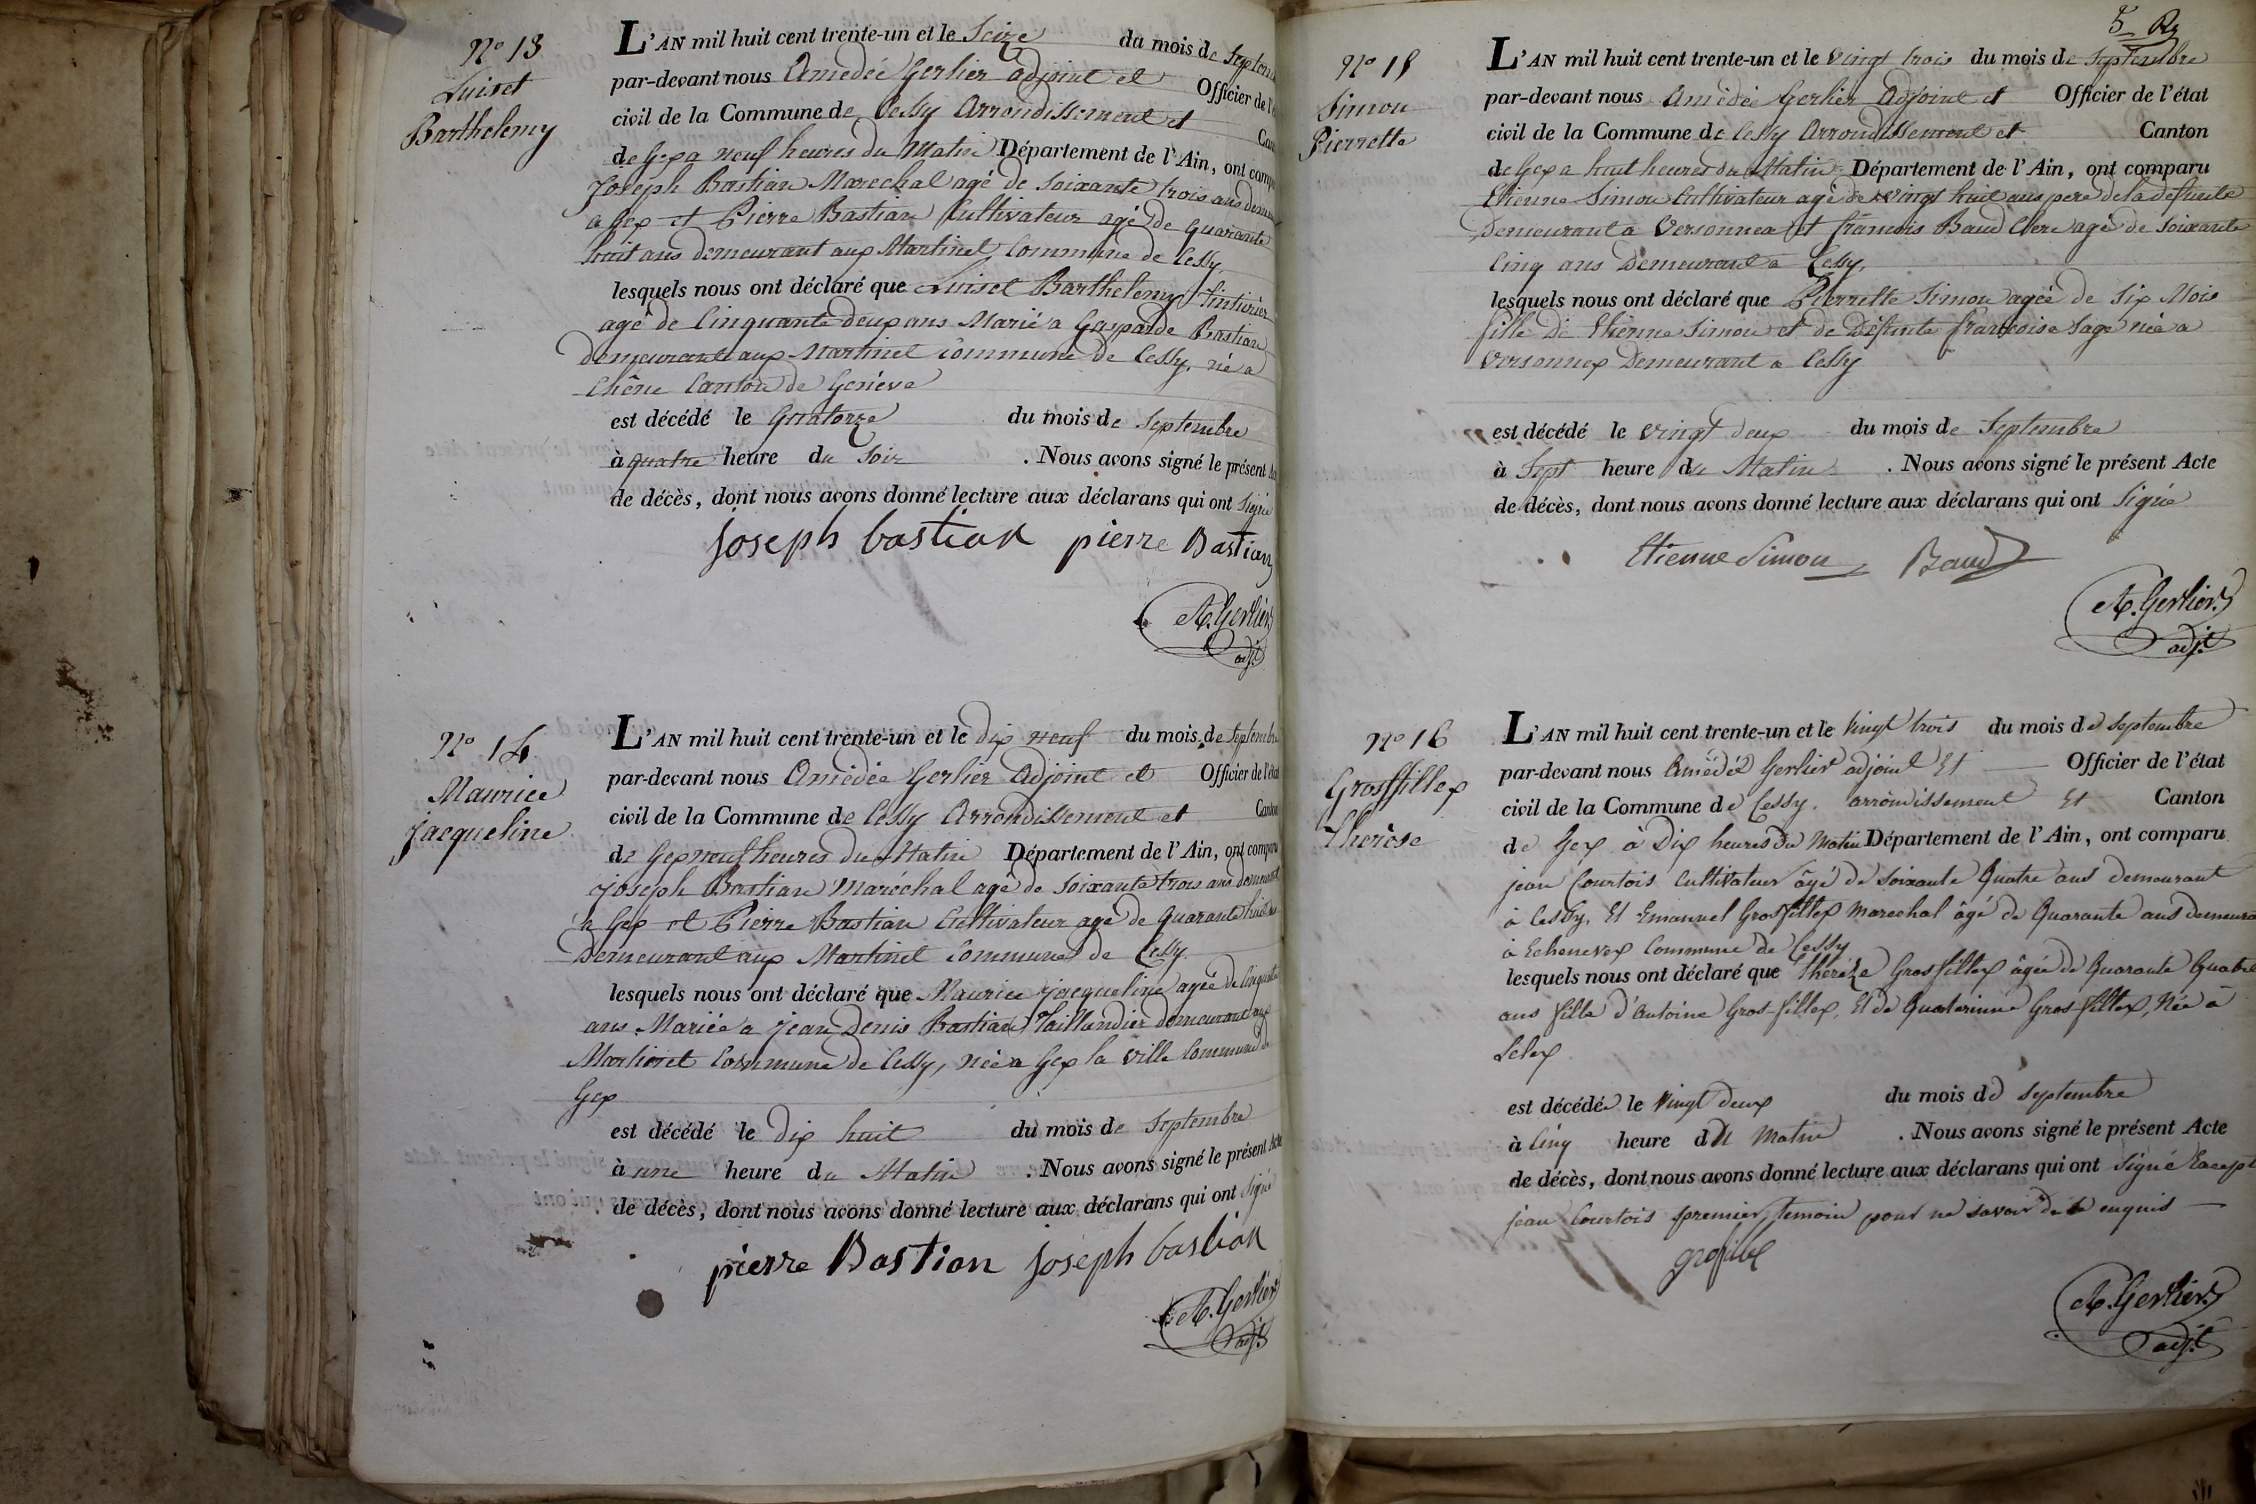 N° 13
Luiset
Barthelemy
L'AN mil huit cent trente-un et le Seize du mois de Septem
par-devant nous Amédée Gerlier adjoint et Officier de l'é
civil de la Commune de Cessy Arrondissement et Can
de Gex a neuf heures du Matin Département de l'Ain, ont comp
Joseph Bastian Marechal agé de soixante trois ans demeu
a Gex et Pierre Bastian Cultivateur agé de quarante
huit ans demeurant aux Martinet Commune de Cessy.
lesquels nous ont déclaré que Luiset Barthelemy Tinturier
agé de Cinquante deux ans Marié a Gasparde Bastian
demeurant aux Martinet Commune de Cessy, né a
Chêne Canton de Genève
est décédé le Quatorze du mois de Septembre
à quatre heure du Soir . Nous avons signé le présent Ac
de décès, dont nous avons donné lecture aux déclarans qui ont Signé
joseph bastian pierre Bastian
A. Gerlier
adj.t
N° 14
Maurice
Jacqueline
L'AN mil huit cent trente-un et le dix neuf du mois de Septembre
par-devant nous Amédée Gerlier Adjoint et Officier de l'état
civil de la Commune de Cessy Arrondissement et Canton
de Gex neuf heures du Matin Département de l'Ain, ont comparu
joseph Bastian Maréchal agé de soixante trois ans demeurant
a Gex et Pierre Bastian Cultivateur agé de quarante huit ans
Demeurant aux Martinet Commune de Cessy.
lesquels nous ont déclaré que Maurice jacqueline agée de Cinquante
ans Mariée a jean Denis Bastian Taillandier demeurant aux
Martinet Commune de Cessy, née a Gex la ville Commune de
Gex
est décédé le dix huit du mois de Septembre
à une heure du Matin . Nous avons signé le présent Acte
de décès, dont nous avons donné lecture aux déclarans qui ont Signé
pierre Bastian joseph bastian
A. Gerlier
adj.t
N° 15
Simon
Pierrette
L'AN mil huit cent trente-un et le vingt trois du mois de Septembre
par-devant nous Amédée Gerlier Adjoint et Officier de l'état
civil de la Commune de Cessy Arrondissement et Canton
de Gex a huit heures du Matin Département de l'Ain, ont comparu
Etienne Simon Cultivateur agé de vingt huit ans pere de la défunte
Demeurant a Versonnex et françois Baud agé de soixante
Cinq ans Demeurant a Cessy,
lesquels nous ont déclaré que Pierrette Simon agée de Six Mois
fille de Etienne Simon et de Défunte françoise Sage née a
Versonnex Demeurant a Cessy
est décédé le vingt deux du mois de Septembre
à Sept heure du Matin . Nous avons signé le présent Acte
de décès, dont nous avons donné lecture aux déclarans qui ont Signé
Etienne Simon Baud
A. Gerlier
adj.t
N° 16
Grosfillex
Therèse
L'AN mil huit cent trente-un et le Vingt trois du mois de Septembre
par-devant nous Amédée Gerlier adjoint Et Officier de l'état
civil de la Commune de Cessy. arrondissement Et Canton
de Gex à Dix heures du Matin Département de l'Ain, ont comparu
jean Courtois Cultivateur âgé de soixante Quatre ans demeurant
à Cessy, Et Emanuel Grosfillex Marechal âgé de Quarante ans demeura
à Echenevex Commune de Cessy
lesquels nous ont déclaré que Thérèze Grosfillex âgée de Quarante Quatre
ans fille d'Antoine Gros-fillex, Et de Quaterinne Gros-fillex, Née à
Lelex
est décédée le Vingt deux du mois de Septembre
à Cinq heure du Matin . Nous avons signé le présent Acte
de décès, dont nous avons donné lecture aux déclarans qui ont Signé Excepté
jean Courtois premier temoin pour ne savoir de ce enquis
grosfillex
A. Gerlier
adj.t